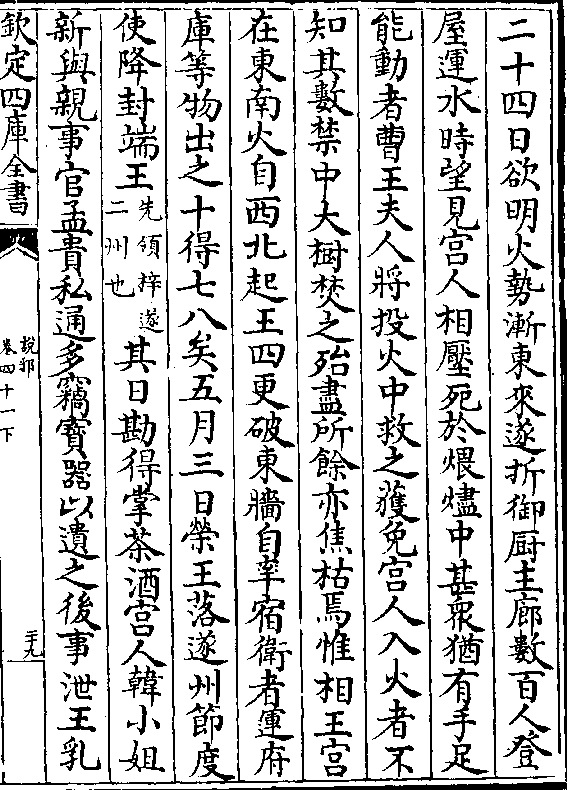 二十四日欲明火勢漸東來遂折御厨主廊數百人登
屋運水時望見宮人相壓死於煨燼中甚衆猶有手足
能動者曹王夫人將投火中救之獲免宮人入火者不
知其數禁中大樹焚之殆盡所餘亦焦枯焉惟相王宮
在東南火自西北起王四更破東牆自率宿衛者運府
庫等物出之十得七八矣五月三日榮王落遂州節度
使降封端王
先領梓遂
二州也
其日勘得掌茶酒宮人韓小姐
新與親事官孟貴私通多竊寳器以遺之後事泄王乳
欽定四庫全書
説郛
卷四十一下